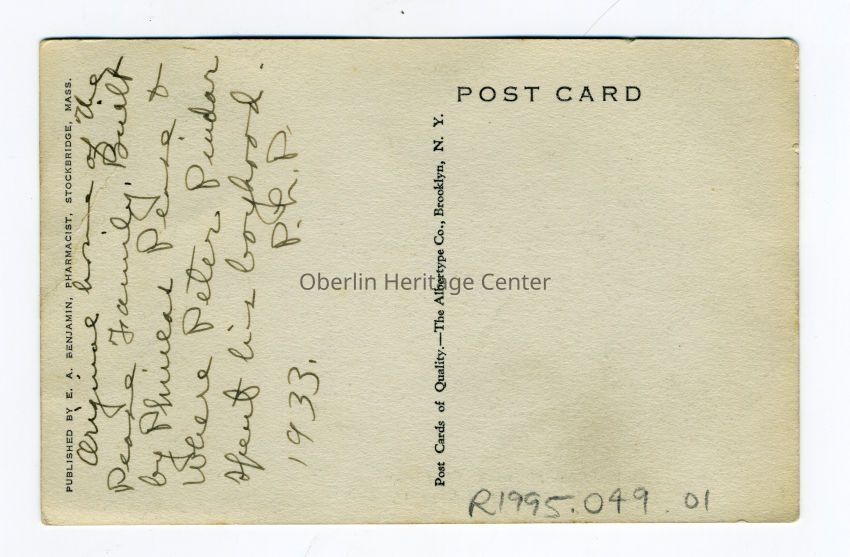 PUBLISHED BY E. A. BENJAMIN, PHARMACIST, STOCKBRIDGE, MASS.
Original home of the
Pease Family. Built
by Phineas Pease &
Where Peter Pindar
spent his boyhood.
P.h.P.
1933.
POST CARD
Post Cards of Quality.—The Albertype Co., Brooklyn, N. Y.
Oberlin Heritage Center
R1995.049.01